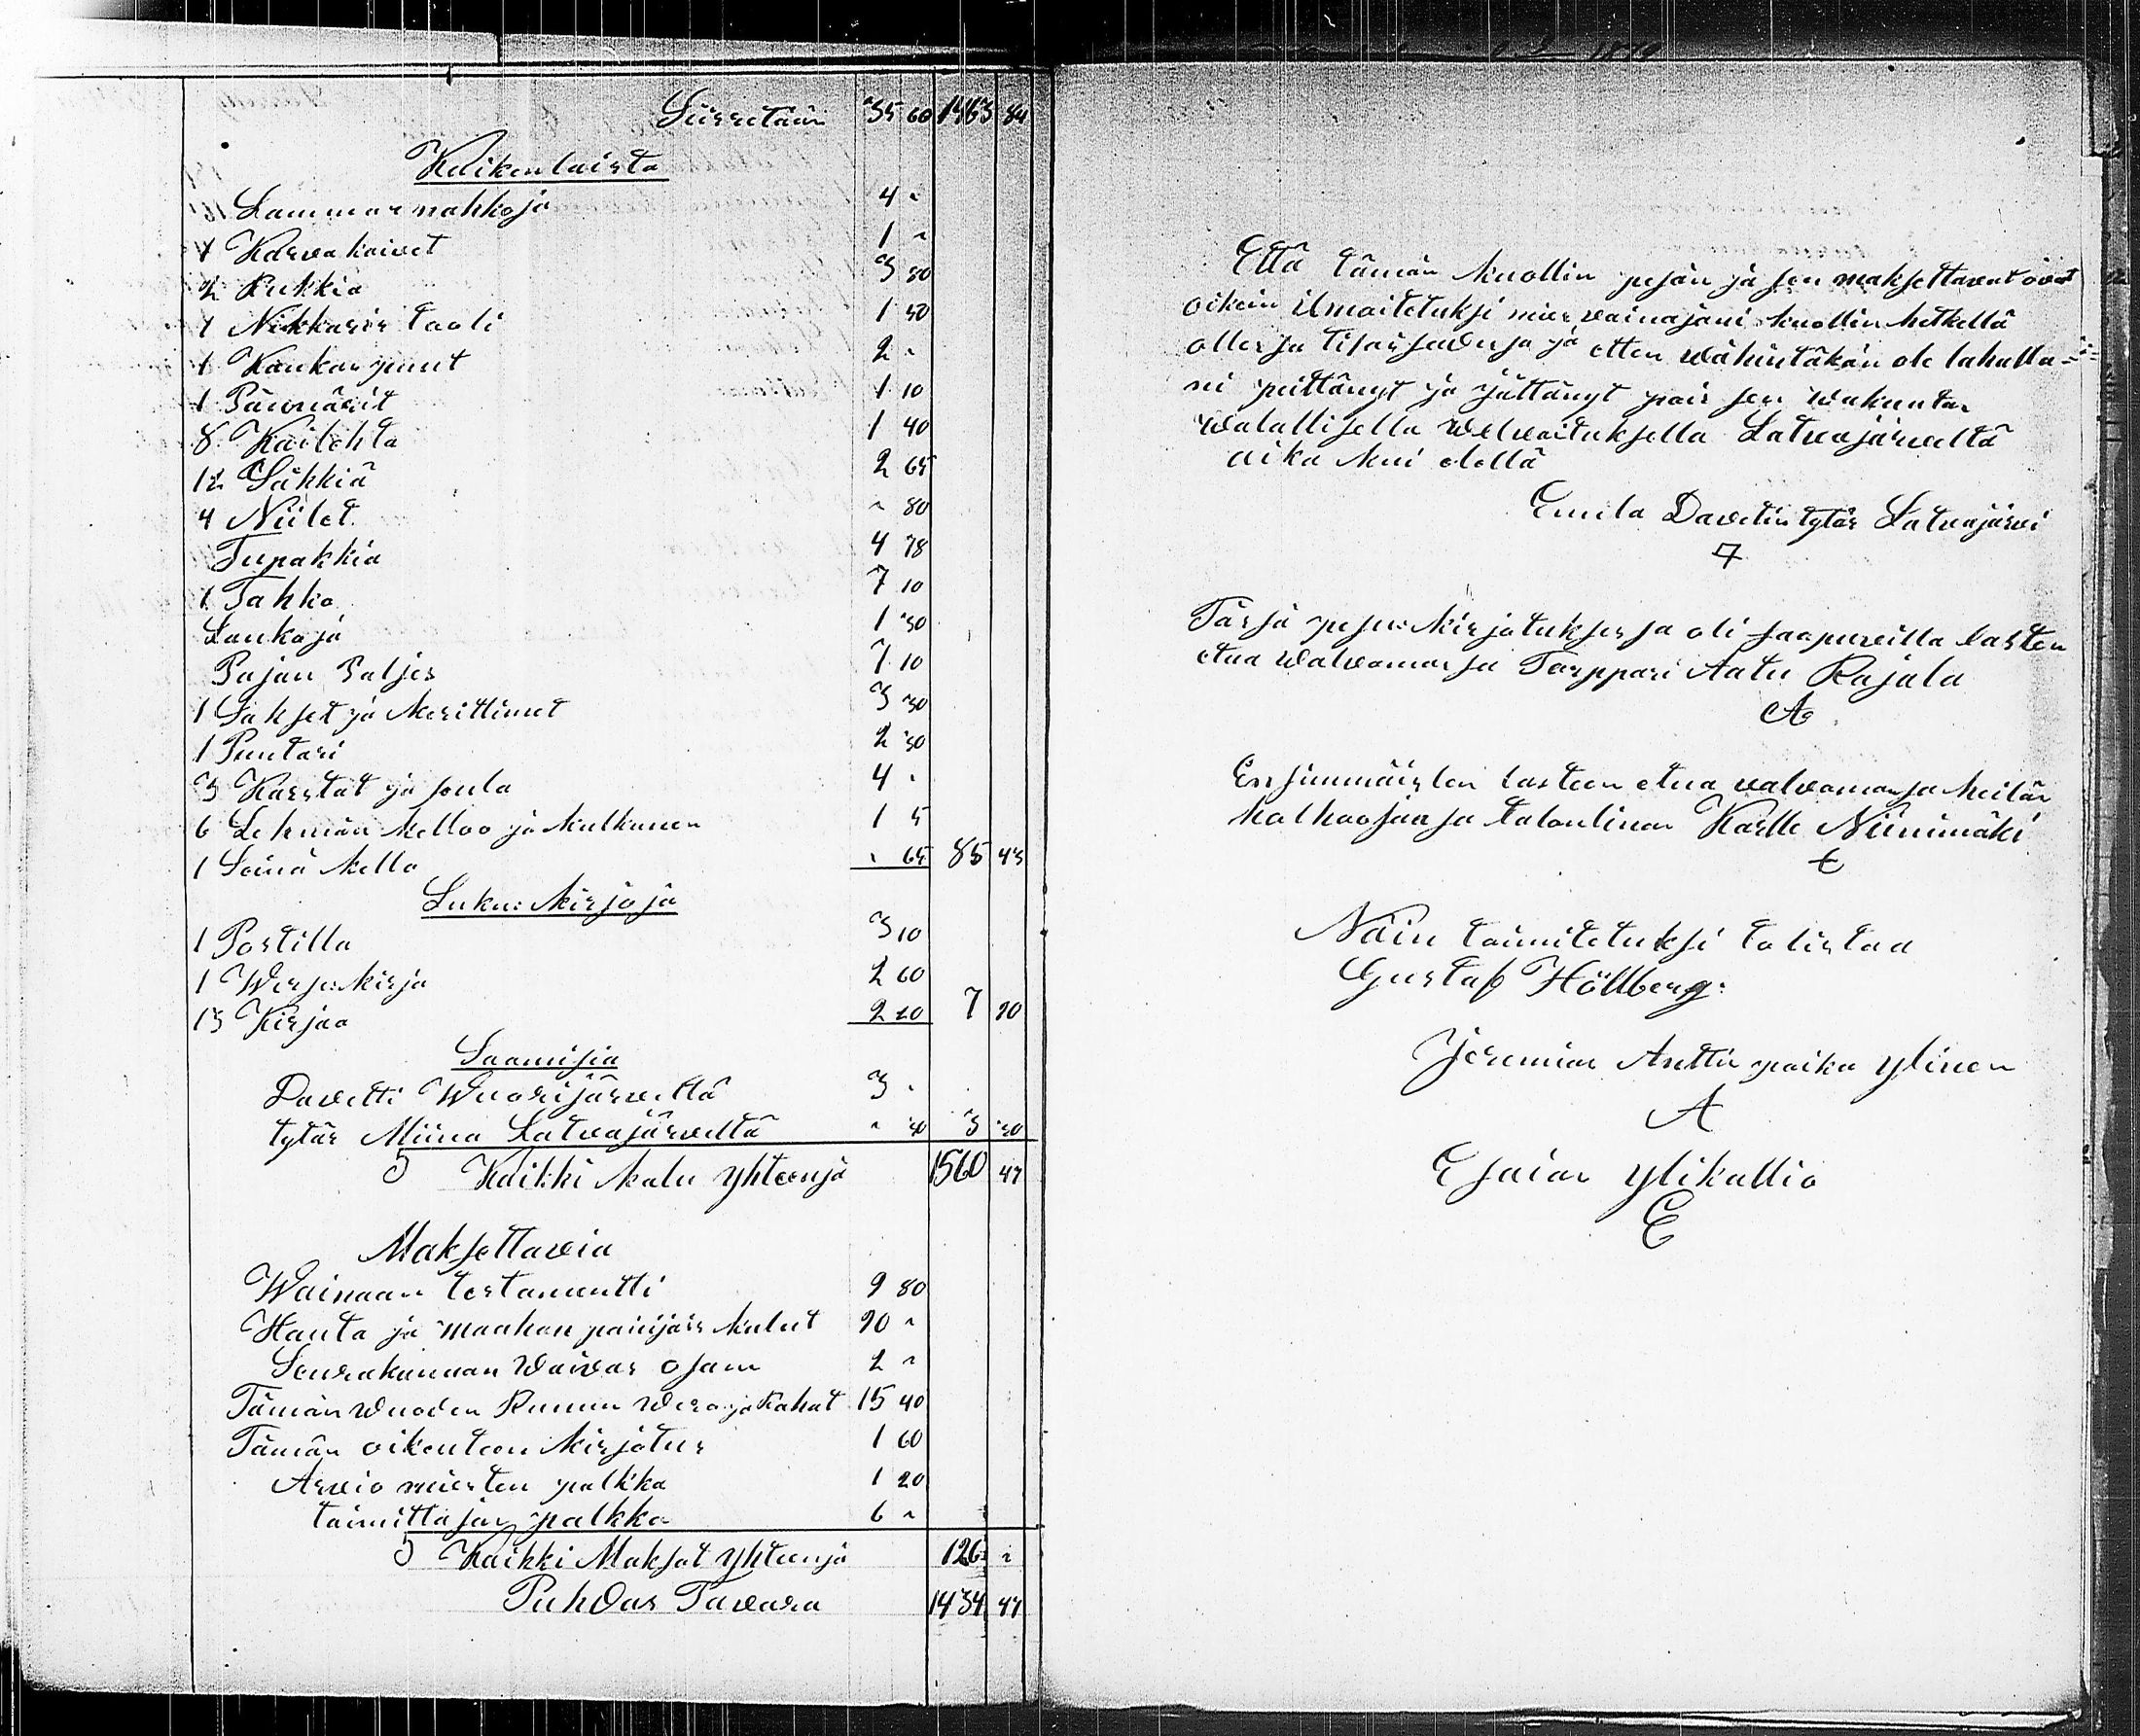 Siirretään 35 60 1463 84
Kaikenlaista
Lammas nahkoja 4 "
1 Karvakaivet 1 "
2 Rukkia 3 80
1 Nikkaris tooli 1 50
1 Kankas puut 2 "
1 Päännävit 1 10
8 Kaitehta 1 40
12 Säkkiä 2 65
4 Niilet " 80
Tupakkia 4 78
1 Tahko 7 10
Lankoja 1 30
Pajan Paljes 7 10
1 Sakset ja kerittimet 3 30
1 Puntari 2 30
3 Karstat ja seula 4 "
6 Lehmän kelloo ja kulkunen 1 5
1 Seinä kello " 65 85 43
Luku: kirjoja
1 Postilla 3 10
1 Wirsi: kirja 2 60
13 Kirjaa 2 20 7 90
Saamisia
Davetti Wuorijärveltä 3 "
tytär Miina Latvajärveltä " 30 3 30
S Kaikki kalu yhteensä 1560 47
Maksettavia
Wainaan testamentti 9 80
Hauta ja maahan panijais kulut 90 "
Seurakunnan Waivas osaan 2 "
Tämän Wuoden Ruunun Wero ja Rahat 15 40
Tämän oikeuteen kirjotus 1 60
Arvio miesten palkka 1 20
toimittajan palkka 6 "
S Kaikki Maksot yhteensä 126 "
Puhdas Tavara 1434 47
Että tämän kuollin pesän ja sen maksettavat ovat
oikein ilmoitetuksi mies vainajani kuollin hetkellä
ollessa tilaisuudessa ja etten wähintäkän ole tahalla=
ni peittänyt ja jättänyt pois sen wakuutan
walallisella welvoituksella Latvajärveltä
aika kui edellä
Emila Davetin tytär Latvajärvi
Tässä pesu: kirjotuksessa oli saapuvilla lasten
etua walvomassa Torppari Aatu Rajala
A
Ensimmäisten lasten etua valvomassa heitän
holhoojansa talonlinen Kalle Niinimäki
Näin toimitetuksi totistaa
Gustaf Hällberg:
Jeremias Anttin poika Ylinen
A
Esaias Ylikallio
E